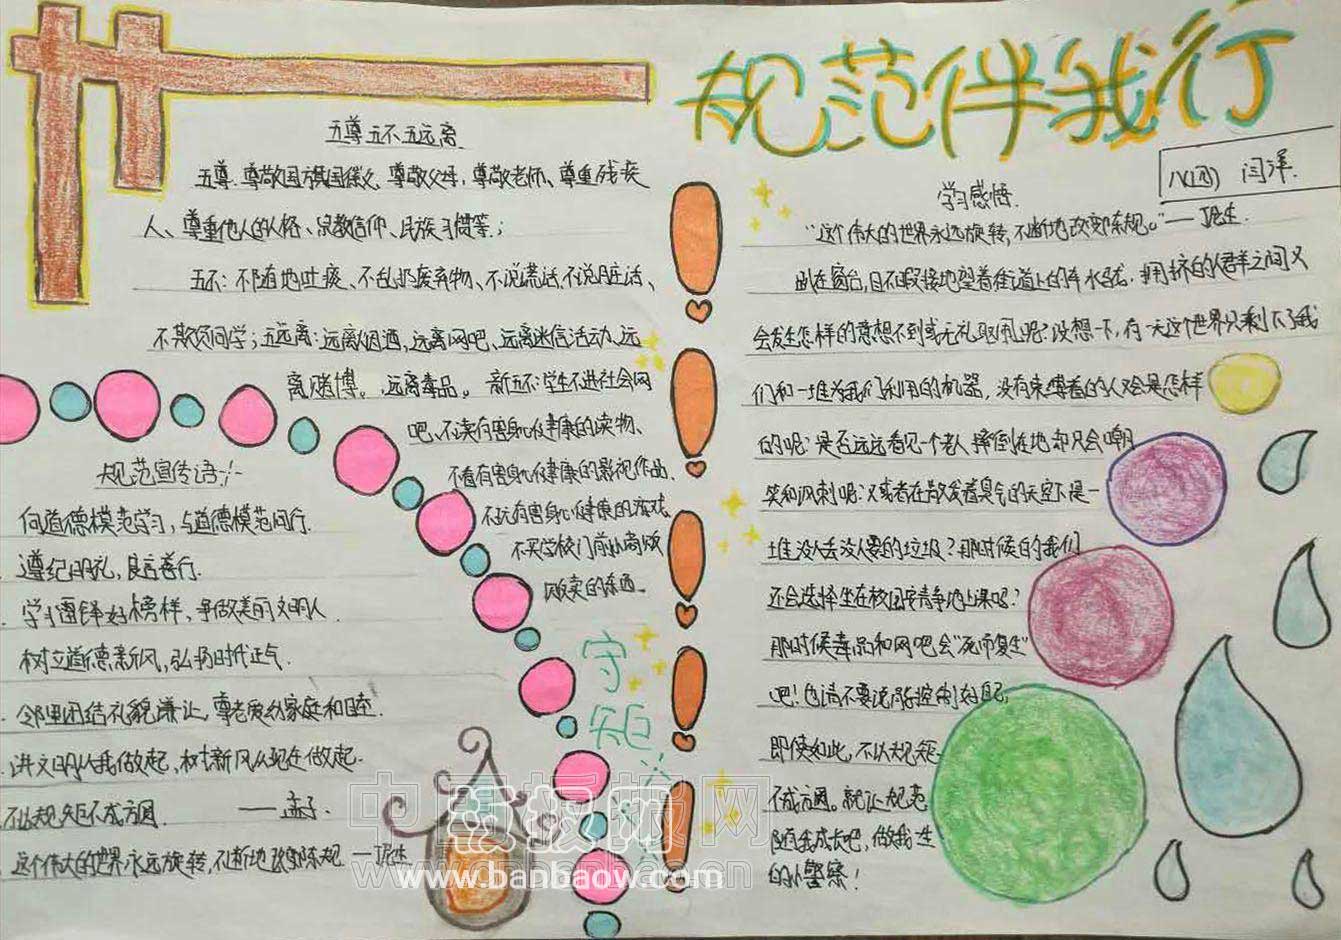 规范伴我行
八(四) 闫洋
五尊五不五远离
五尊:尊敬国旗国徽、尊敬父母,尊敬老师、尊重残疾
人、尊重他人的人格、宗教信仰、民族习惯等;
五不:不随地吐痰、不乱扔废弃物、不说谎话、不说脏话、
不欺负同学;五远离:远离烟酒,远离网吧、远离迷信活动、远
离赌博。远离毒品。新五不:学生不进社会网
吧、不读有害身心健康的读物、
不看有害身心健康的影视作品、
不玩有害身心健康的游戏、
不买学校门前小商贩
贩卖的东西。
规范宣传语:
向道德模范学习,与道德模范同行.
遵纪明礼,良言善行.
学习雷锋好榜样,争做美丽文明人
树立道德新风,弘扬时代正气.
邻里团结礼貌谦让,尊老爱幼家庭和睦.
讲文明从我做起,树新风从现在做起.
不以规矩不成方圆. ——孟子.
这个伟大的世界永远旋转,不断地改变陈规. —
守
矩
学习感悟.
"这个伟大的世界永远旋转,不断地改变陈规。"——
趴在窗台,目不暇接地望着街道上的车水马龙.拥挤的人群之间又
会发生怎样的意想不到或无礼取闹呢?没想一下,有一天这个世界只剩下了我
们和一堆为我们利用的机器,没有束缚着的人又会是怎样
的呢?是否远远看见一个老人摔倒在地却只会嘲
笑和讽刺呢?又或者在散发着臭气的天空下是一
堆没人去没人要的垃圾?那时候的我们
还会选择坐在校园安静地上课吗?
那时候毒品和网吧会"死而复生"
吧!也请不要说你控制好自己,
即使如此,不以规矩
不成方圆。就让规范
随我成长吧,做我一生
的小警察!
中国板报网
www.banbaow.com